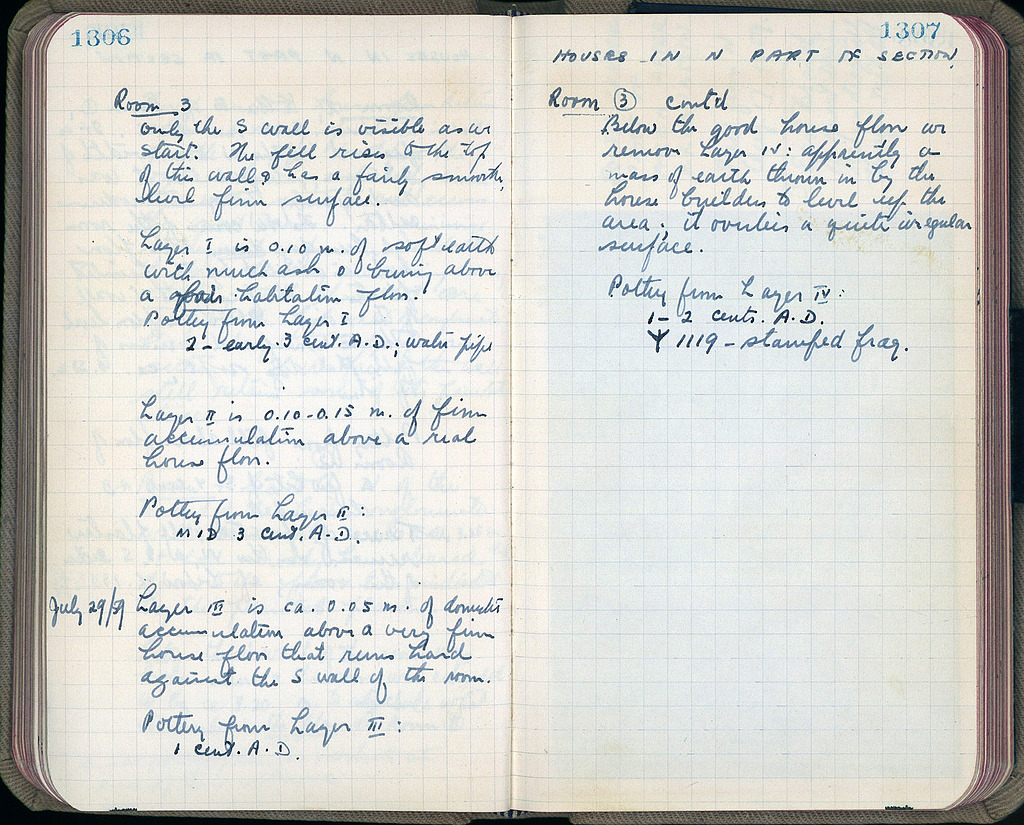 1306
Room 3
only the S wall is visible as we
start. The fill rises to the top
of this wall & has a fairly smooth,
level firm surface.
Layer I is 0.10 m. of soft earth
with much ash & burning above
a habitation floor.
Pottery from Layer I
2 - early 3 cent. A.D.; water pipe
Layer II is 0.10-0.15 m. of firm
accumulation above a real
house floor.
Pottery from Layer II:
MID 3 cent. A.D.
July 29/59 Layer III is ca. 0.05 m. of domestic
accumulation above a very firm
house floor that runs hard
against the S wall of the room.
Pottery from Layer III:
1 cent. A.D.
1307
HOUSES IN N PART OF SECTION
Room 3 contd
Below the good house floor we
remove Layer IV: apparently a
mass of earth thrown in by the
house builders to level up the
area; it overlies a quite irregular
surface.
Pottery from Layer IV:
1-2 cents. A.D.
1119 - stamped frag.